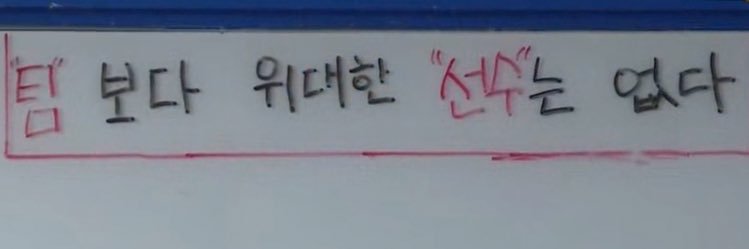 "팀" 보다 위대한 "선수"는 없다